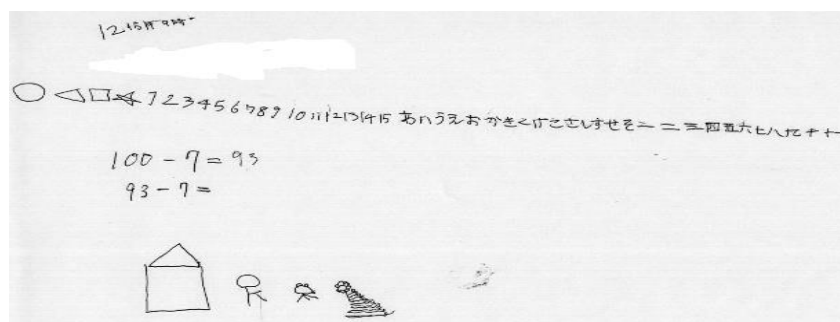 12
1 2 3 4 5 6 7 8 9 10 11 12 13 14 15 あいうえおかきくけこさしすせそ一二三四五六七八九十十一
100-7=93
93-7=